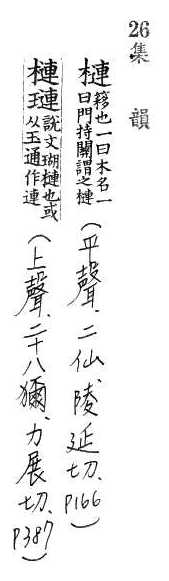 26集韻
槤簃也一曰木名一曰門持關謂之槤(平聲、二仙、陵延切、P166)
槤璉說文瑚槤也或从玉通作連(上聲、二十八獮、力展切、P387)